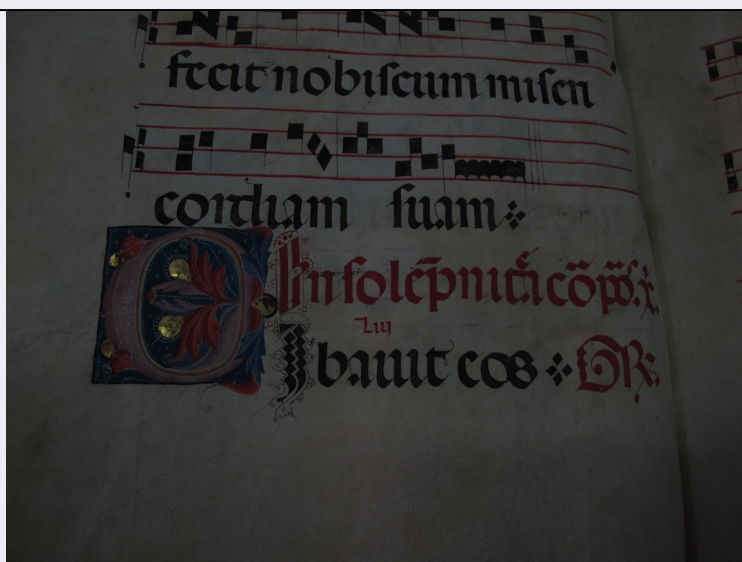 fecit nobiscum miseri
cordiam suam
In solēpnit̄ī cō
Liij
Cibavit eos OR